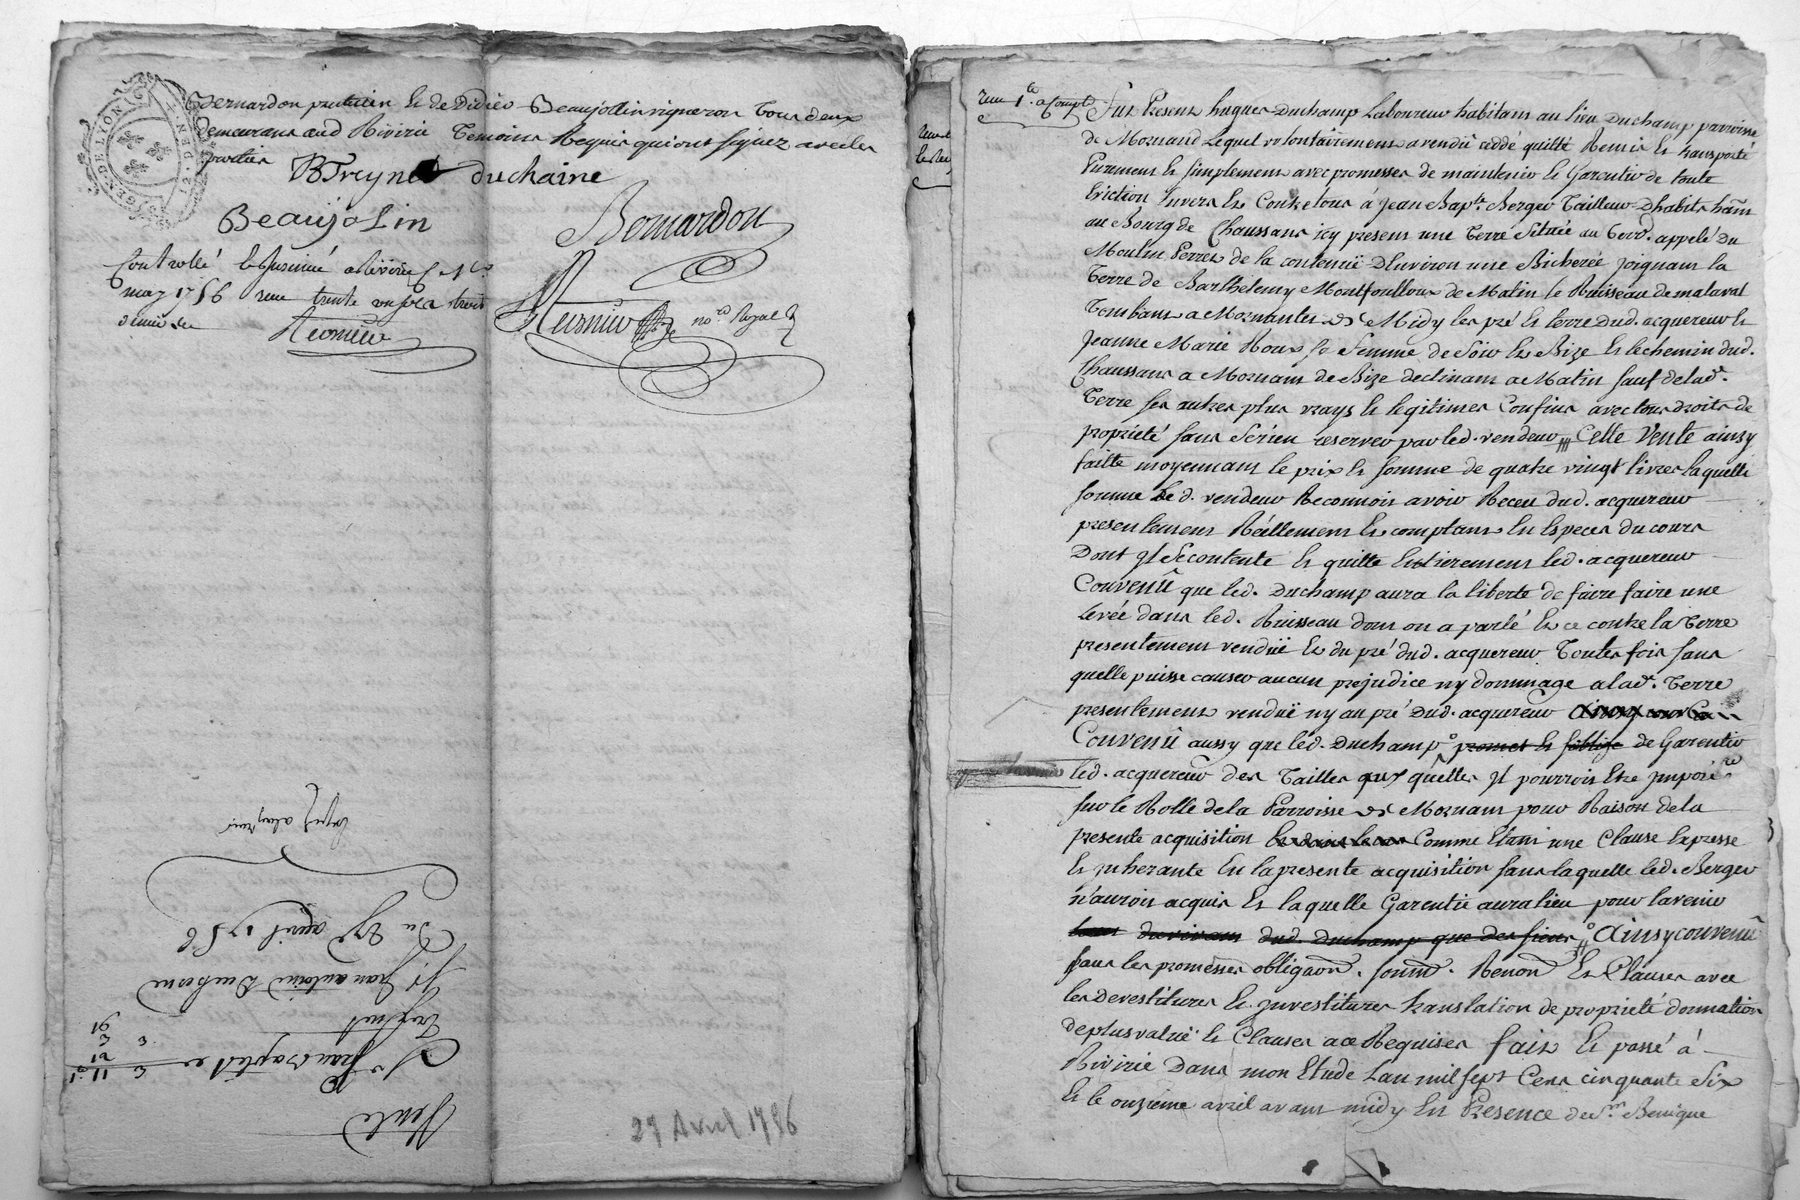 GEN. DE LYON
Bernardon praticien Et de Didier Beaujollin vigneron Tous deux
demeurans aud Riverie Temoins Requis qui ont signez avec les
parties
BTreynet duchaine
Beaujolin Bernardon
Controllé
may 1756 trente
no.re Royal
Du 29 avril 1756
Sr Jean antoine Duchene
Treynet
Sr Jean baptiste
Vente
29 Avril 1756
Fut Present hugues Duchamp Laboureur habitant au lieu Duchamp parroisse
de Mornand Lequel volontairement a vendu ceddé quitté Remis Et transporté
Purement Et simplement avec promesses de maintenir Et Garentir de toute
Eviction Envers Et Contre tous à jean Bapte. Berger Tailleur Dhabits hant
au Bourg de Chaussans icy present une Terre Située au Terrd. appelé Du
Moulin Perret de la contenuë D'Environ une Bicherée joignant la
Terre de Barthelemy Montfoulloux de Matin le Ruisseau de malaval
Tombant a Mornantet de Midy les pré Et terre Dud. acquereur Et
Jeanne Marie Roux sa Femme de Soir Et Bize Et le chemin dud.
Chaussans a Mornant de Bize declinant a Matin sauf de lad.
Terre ses autres plus vrays Et legitimes Confins avec tous droits de
proprieté sans se rien reserver par led. vendeur Cette Vente ainsy
faitte moyennant le prix Et somme de quatre vingt livres laquelle
somme Led. vendeur Reconnoit avoir Receu dud. acquereur
presentement Réellement Et comptant En Especes du cours
Dont jl Se contente Et quitte Entierement led. acquereur
Convenû que led. Duchamp aura la liberté de faire faire une
Levée dans led. Ruisseau dont on a parlé Et ce contre la Terre
presentement venduë Et du pré dud. acquereur Toutes fois sans
quelle puisse causer aucun prejudice ny dommage a lad. Terre
presentement venduë ny au pré Dud. acquereur
Convenû aussy que led. Duchamp promet Et s'oblige de Garentir
led. acquereur des Tailles aux quelles jl pourroit Etre jmposé
sur le Rolle de la Parroisse de Mornant pour Raison de la
presente acquisition Comme Etant une Clause Expresse
Et jnherante En la presente acquisition sans laquelle led. Berger
n'auroit acquis Et laquelle Garentie aura lieu pour lavenir
dud. Duchamp que des siens Ainsy convenû
sous les promesses obligaon. soumd. Renond Et Clauses avec
les devestitures Et jnvestitures translation de proprieté donnation
de plus valuë Et Clauses a ce Requises fait Et passé à
Riverie Dans mon Etude Lan mil sept Cens cinquante Six
Et le onzieme avril avant midy En Presence de Sr. Benigne